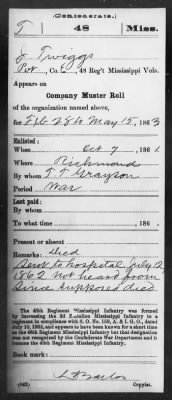 (Confederate.)
T 48 Miss.
J Twiggs
Pvt, Co. E, 48 Reg't Mississippi Vols.
Appears on
Company Muster Roll
of the organization named above,
for Feb 28 to May 15, 1863
Enlisted:
When Oct 7, 1861.
Where Richmond
By whom T. T. Grayson
Period War
Last paid:
By whom
To what time , 186 .
Present or absent
Remarks: Died
Sent to hospital July 2
1862 Not heard from
Since supposed died
The 48th Regiment Mississippi Infantry was formed
by increasing the 2d Battalion Mississippi Infantry to a
regiment in compliance with S. O. No. 159, A. & I. G. O., dated
July 10, 1862, and appears to have been known for a short time
as the 45th Regiment Mississippi Infantry but that designation
was not recognized by the Confederate War Department and it
became the 48th Regiment Mississippi Infantry.
Book mark:
(642) Copyist.